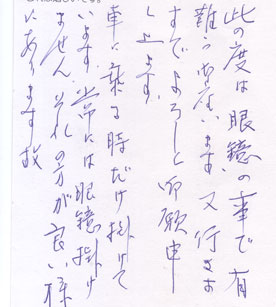 此の度は眼鏡の事で有
難うございます。又行きま
すでよろしく御願申
し上ます。
車に乗る時だけ掛けて
います。常には眼鏡掛け
ません。それの方が良い様
にあります故